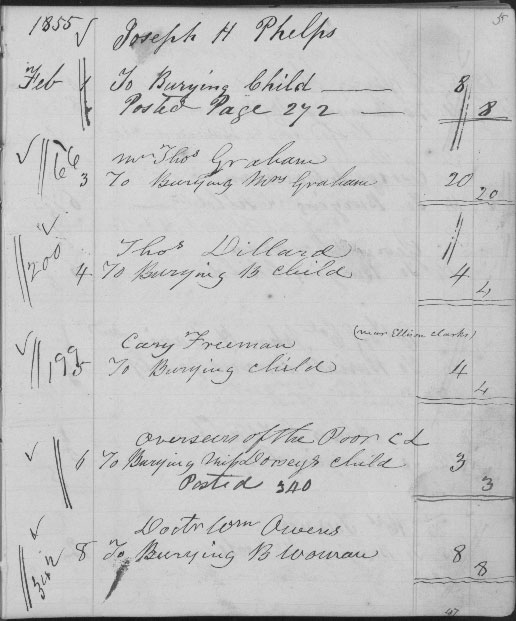 35
1855 Joseph H Phelps
Feb 1 To Burying Child 8
Posted Page 272 8
66 Mr Thos Graham
3 To Burying Mrs Graham 20 20
200 Thos Dillard
4 To Burying B Child 4 4
199 Cary Freeman (near Ellison Clarks)
5 To Burying Child 4 4
Overseers of the Poor C L
6 To Burying Miss Dorsey's child 3
Posted 340 3
342 Doctr Wm Owens
8 To Burying B Woman 8 8
47